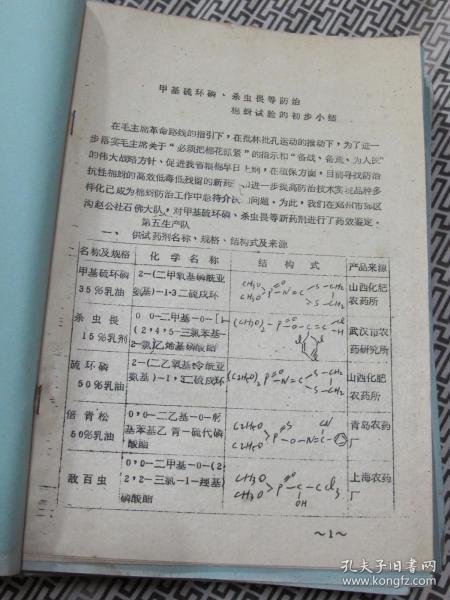 甲基硫环磷、杀虫畏等防治
棉蚜试验的初步小结
在毛主席革命路线的指引下，在批林批孔运动的推动下，为了进一
步落实毛主席关于“必须把棉花抓紧”的指示和“备战、备荒、为人民”
的伟大战略方针、促进我省粮棉早日上纲，在植保方面，目前寻防治
抗性棉蚜的高效低毒低残留的新药 进一步提高防治技术实现品种多
样化已成为棉蚜防治工作中急待介决 问题。为此，我们在郑州市郊区
沟赵公社石佛大队，对甲基硫环磷、杀虫畏等新药剂进行了药效鉴定。
第五生产队
一、供试药剂名称、规格、结构式及来源
名称及规格 化学名称 结构式 产品来源
甲基硫环磷 35%乳油 2-(二甲氧基磷酰亚氨基)-1·3二硫戊环 山西化肥农药所
杀虫畏 15%乳剂 0 0-二甲基-0-[1-(2,4,5-三氯苯基-2-氯)乙烯基磷酸酯 武汉市农药研究所
硫环磷 50%乳油 2-(二乙氧基 酰亚氨基)-1,3二硫戊环 山西化肥农药所
倍青松 50%乳油 0,0-二乙基-0- 基苯基乙青-硫代磷酸酯 青岛农药厂
敌百虫 0,0-二甲基-0-(2,2,2-三氯-1-羟基)磷酸酯 上海农药厂
～1～
孔夫子旧书网
www.kongfz.com